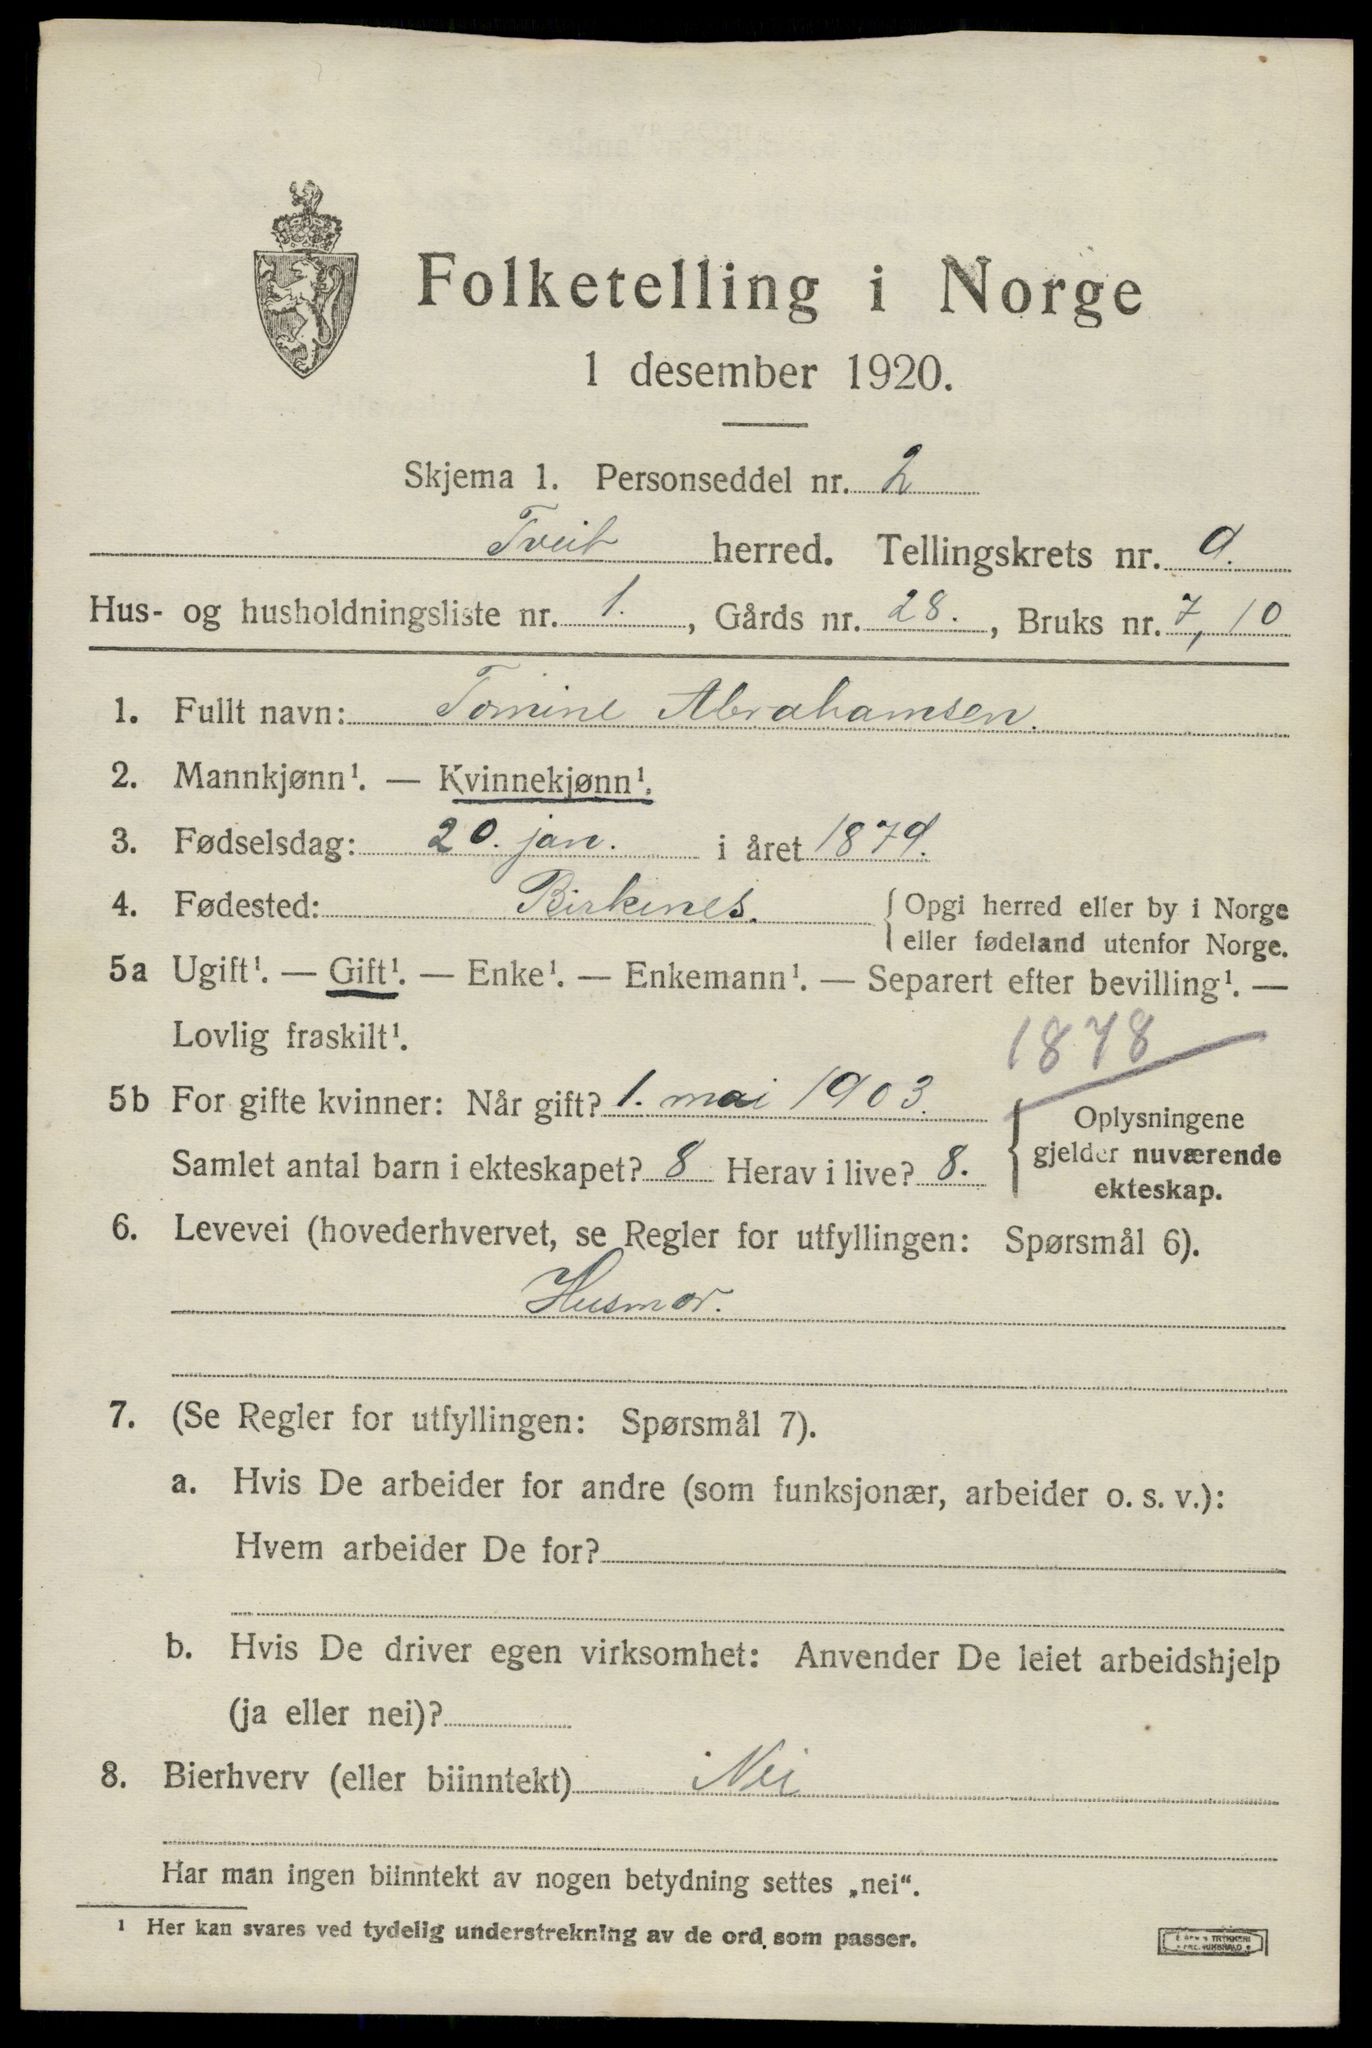 Folketelling i Norge
1 desember 1920.
Skjema 1. Personseddel nr. 2
Tveit herred. Tellingskrets nr. 9.
Hus- og husholdningsliste nr. 1., Gårds nr. 28., Bruks nr. 7, 10
1. Fullt navn: Tomine Abrahamsen.
2. Mannkjønn¹. — Kvinnekjønn¹.
3. Fødselsdag: 20. jan. i året 1879.
4. Fødested: Birkenes. { Opgi herred eller by i Norge
eller fødeland utenfor Norge.
5a Ugift¹. — Gift¹. — Enke¹. — Enkemann¹. — Separert efter bevilling¹. —
Lovlig fraskilt¹.
1878
5b For gifte kvinner: Når gift? 1. mai 1903.
Samlet antal barn i ekteskapet? 8 Herav i live? 8.
{ Oplysningene
gjelder nuværende
ekteskap.
6. Levevei (hovederhvervet, se Regler for utfyllingen: Spørsmål 6).
Husmor.
7. (Se Regler for utfyllingen: Spørsmål 7).
a. Hvis De arbeider for andre (som funksjonær, arbeider o. s. v.):
Hvem arbeider De for?
b. Hvis De driver egen virksomhet: Anvender De leiet arbeidshjelp
(ja eller nei)?
8. Bierhverv (eller biinntekt) Nei
Har man ingen biinntekt av nogen betydning settes „nei“.
¹ Her kan svares ved tydelig understrekning av de ord som passer.